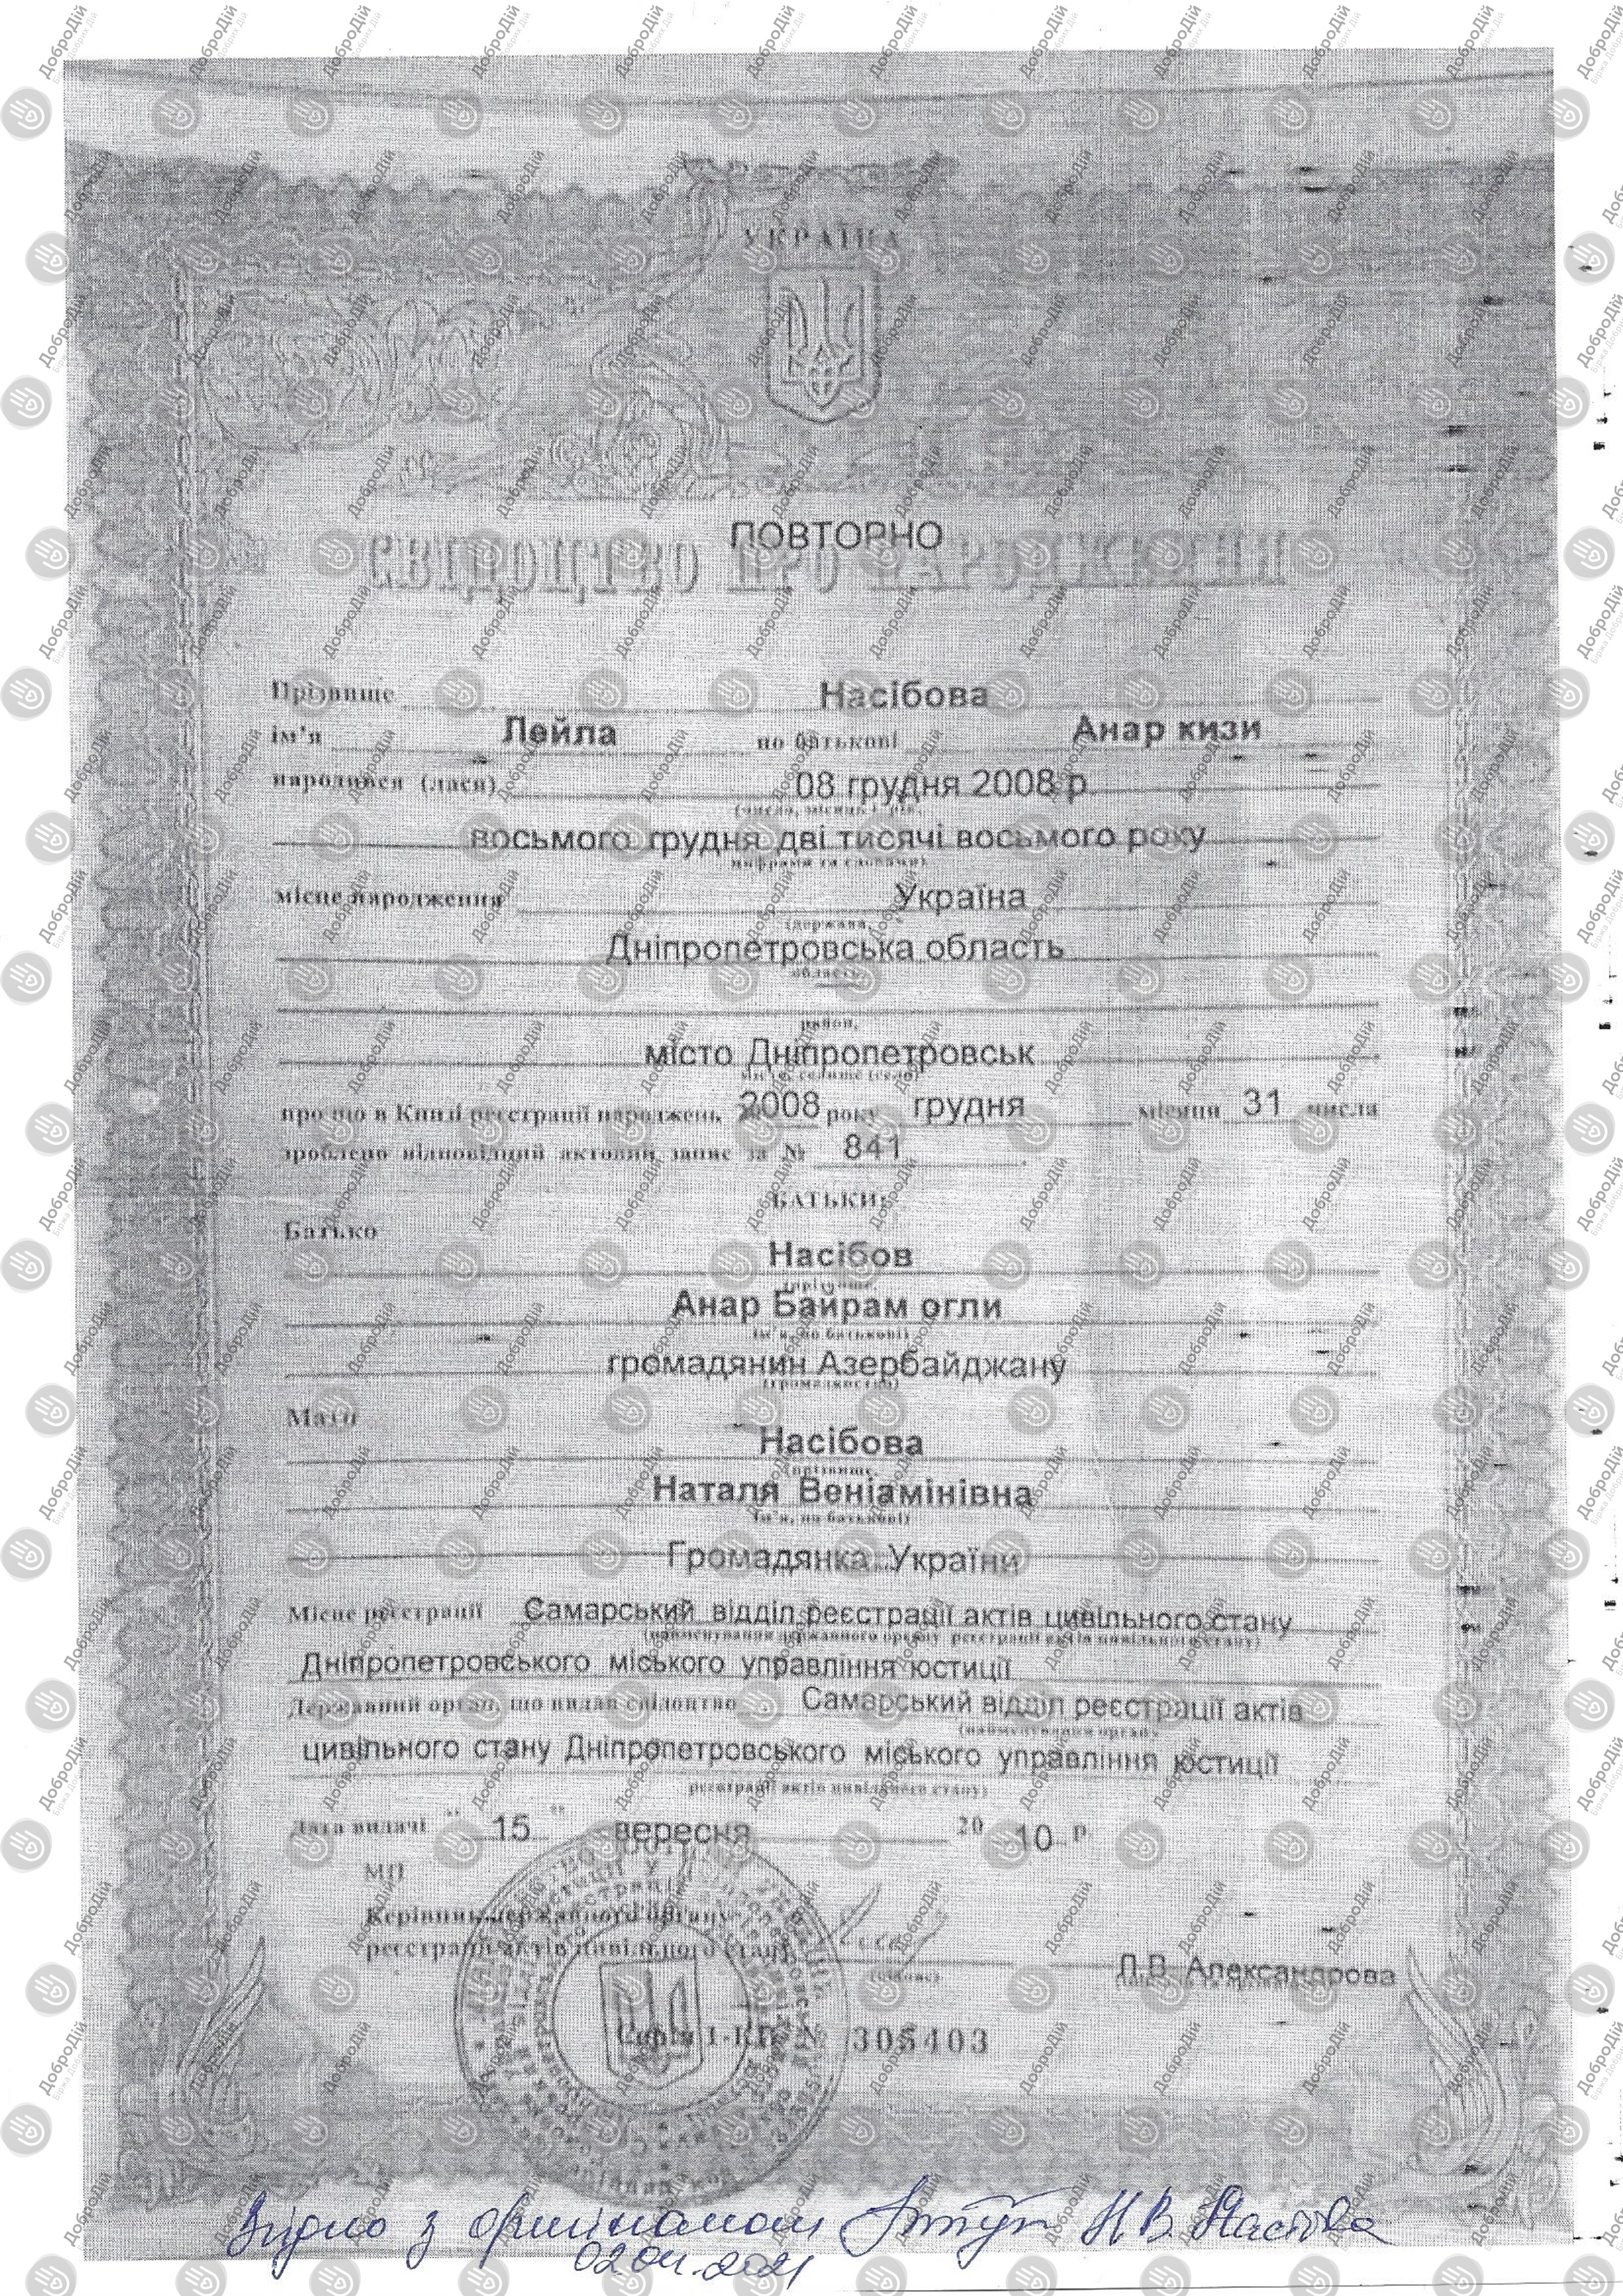 УКРАЇНА
ПОВТОРНО
СВІДОЦТВО ПРО НАРОДЖЕННЯ
Прізвище Насібова
ім'я Лейла по батькові Анар кизи
народився (лася) 08 грудня 2008 р.
(число, місяць і рік,
восьмого грудня дві тисячі восьмого року
цифрами та словами)
місце народження Україна
(держава,
Дніпропетровська область
область
район,
місто Дніпропетровськ
місто, селище (село)
про що в Книзі реєстрації народжень 2008 року грудня місяця 31 числа
зроблено відповідний актовий запис за № 841
БАТЬКИ:
Батько
Насібов
(прізвище,
Анар Байрам огли
ім'я, по батькові)
громадянин Азербайджану
(громадянство)
Мати
Насібова
(прізвище,
Наталя Веніамінівна
ім'я, по батькові)
Громадянка України
Місце реєстрації Самарський відділ реєстрації актів цивільного стану
(найменування державного органу реєстрації актів цивільного стану)
Дніпропетровського міського управління юстиції
Державний орган, що видав свідоцтво Самарський відділ реєстрації актів
(найменування органу
цивільного стану Дніпропетровського міського управління юстиції
реєстрації актів цивільного стану)
Дата видачі " 15 " вересня 20 10 р.
МП
Керівник державного органу
реєстрації актів цивільного стану
(підпис)
Л.В. Александрова
Серія 1-КИ № 305403
Згідно з оригіналом Н.В.
02.04.2021
ДоброДій
Біржа Добрих Дій